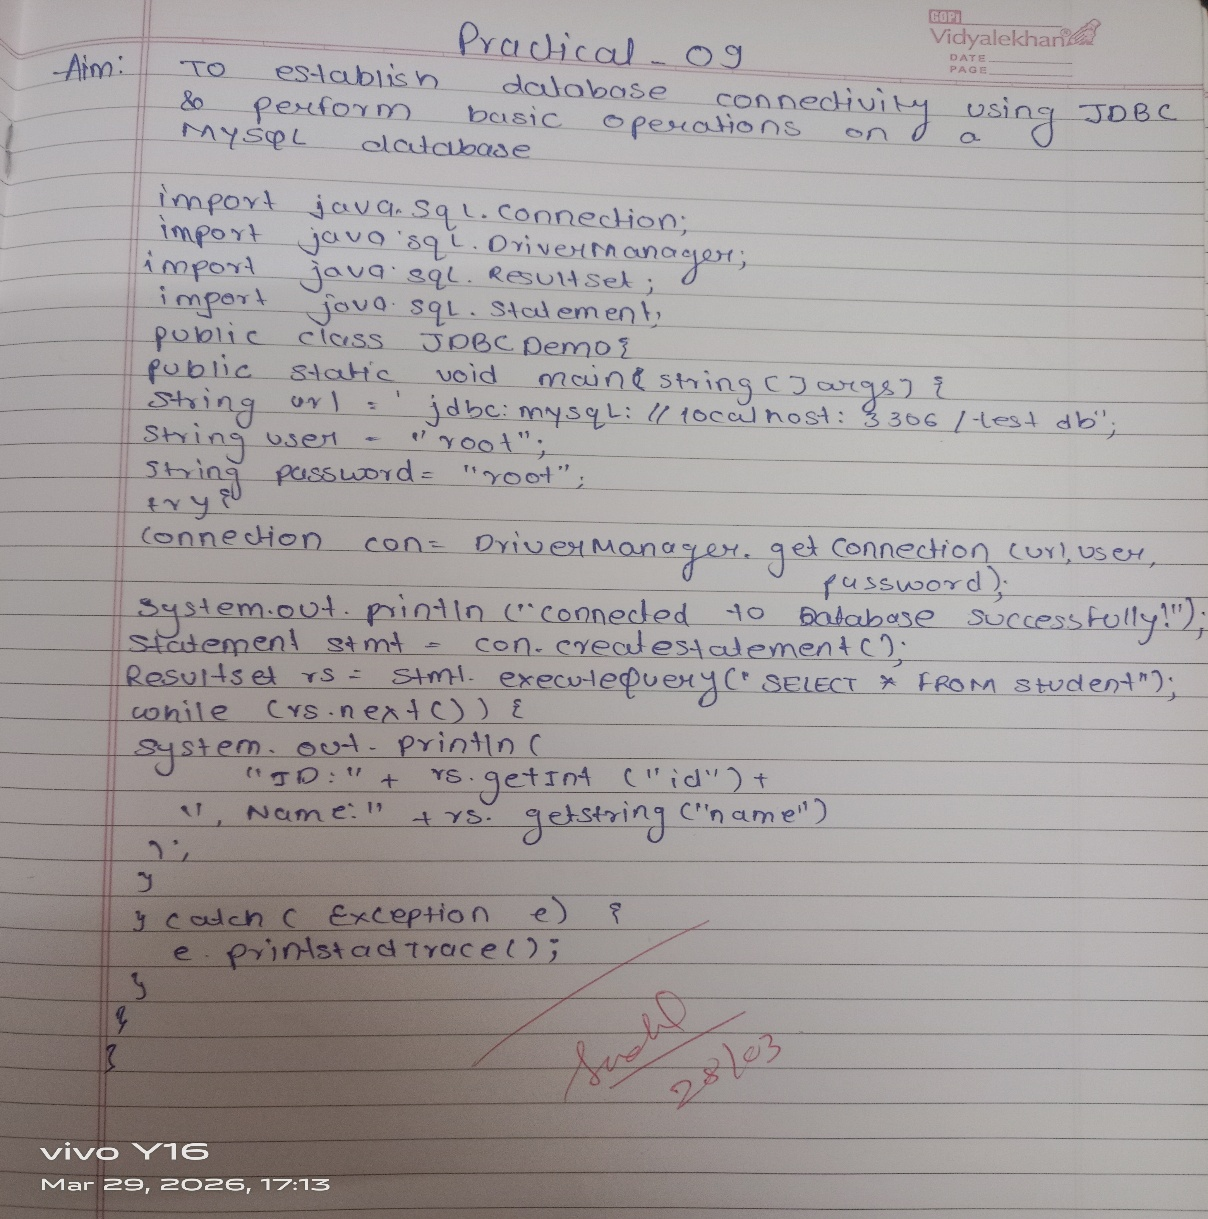 GOPI
Vidyalekhan
DATE
PAGE
Practical - 09
Aim: To establish database connectivity using JDBC
& perform basic operations on a
MySQL database
import java.sql.connection;
import java.sql.DriverManager;
import java.sql.Resultset;
import java.sql.Statement;
public class JDBCDemo{
public static void main( string [] args) {
String url = "jdbc:mysql://localhost:3306/test db";
String user = "root";
String password = "root";
try{
connection con = DriverManager.get Connection (url, user,
password);
system.out.println ("connected to Database successfully!");
Statement stmt = con.createstatement();
Resultset rs = stmt.executequery(" SELECT * FROM student");
while (rs.next()) {
system.out.println (
"ID:" + rs.getInt ("id") +
", Name:" + rs.getstring ("name")
);
}
} catch ( Exception e) {
e.printstackTrace();
}
}
}
28/03
vivo Y16
Mar 29, 2026, 17:13